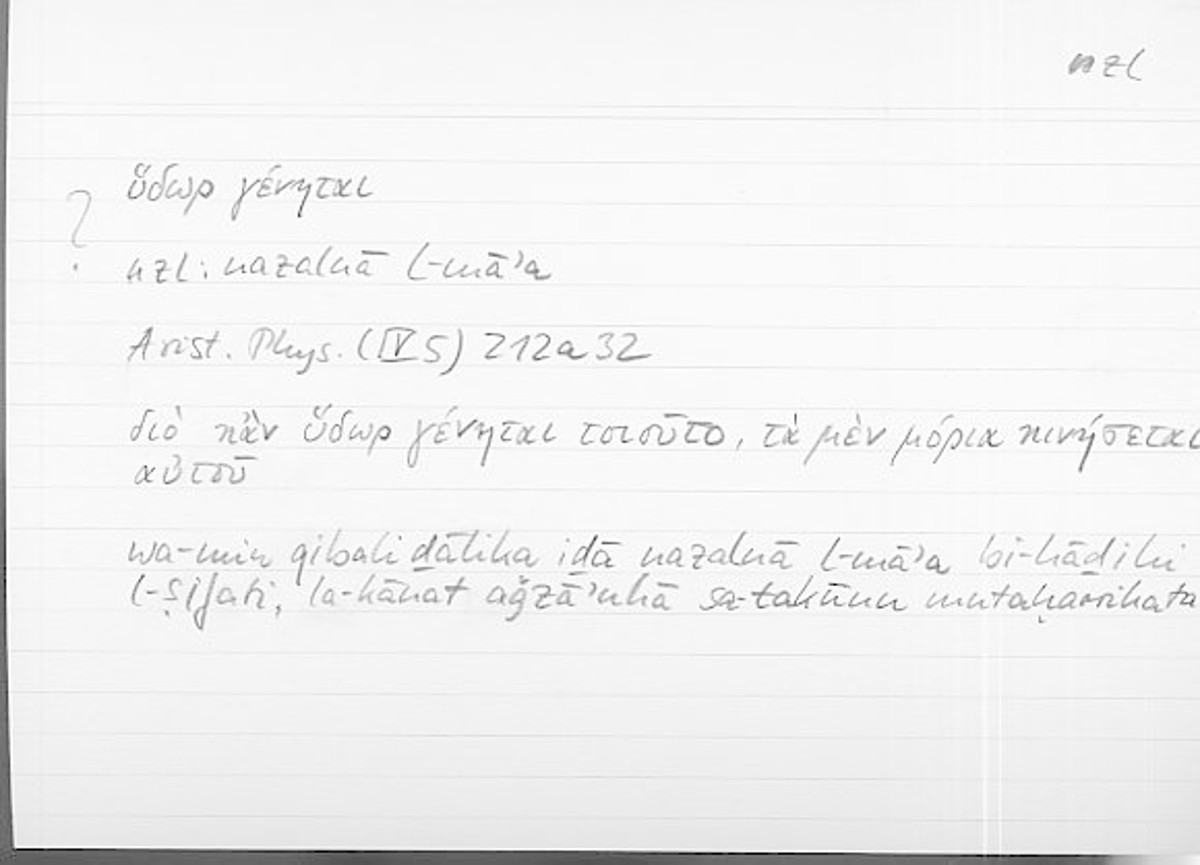 nzl
ὕδωρ γένηται
?
nzl: nazalnā l-mā’a
Arist. Phys. (IV 5) 212a32
διὸ κἂν ὕδωρ γένηται τοιοῦτο, τὰ μὲν μόρια κινήσεται
αὐτοῦ
wa-min qibali ḏālika iḏā nazalnā l-mā’a bi-hāḏihi
l-ṣifati, la-kānat aǧzā’uhā sa-takūnu mutaḥarrikata